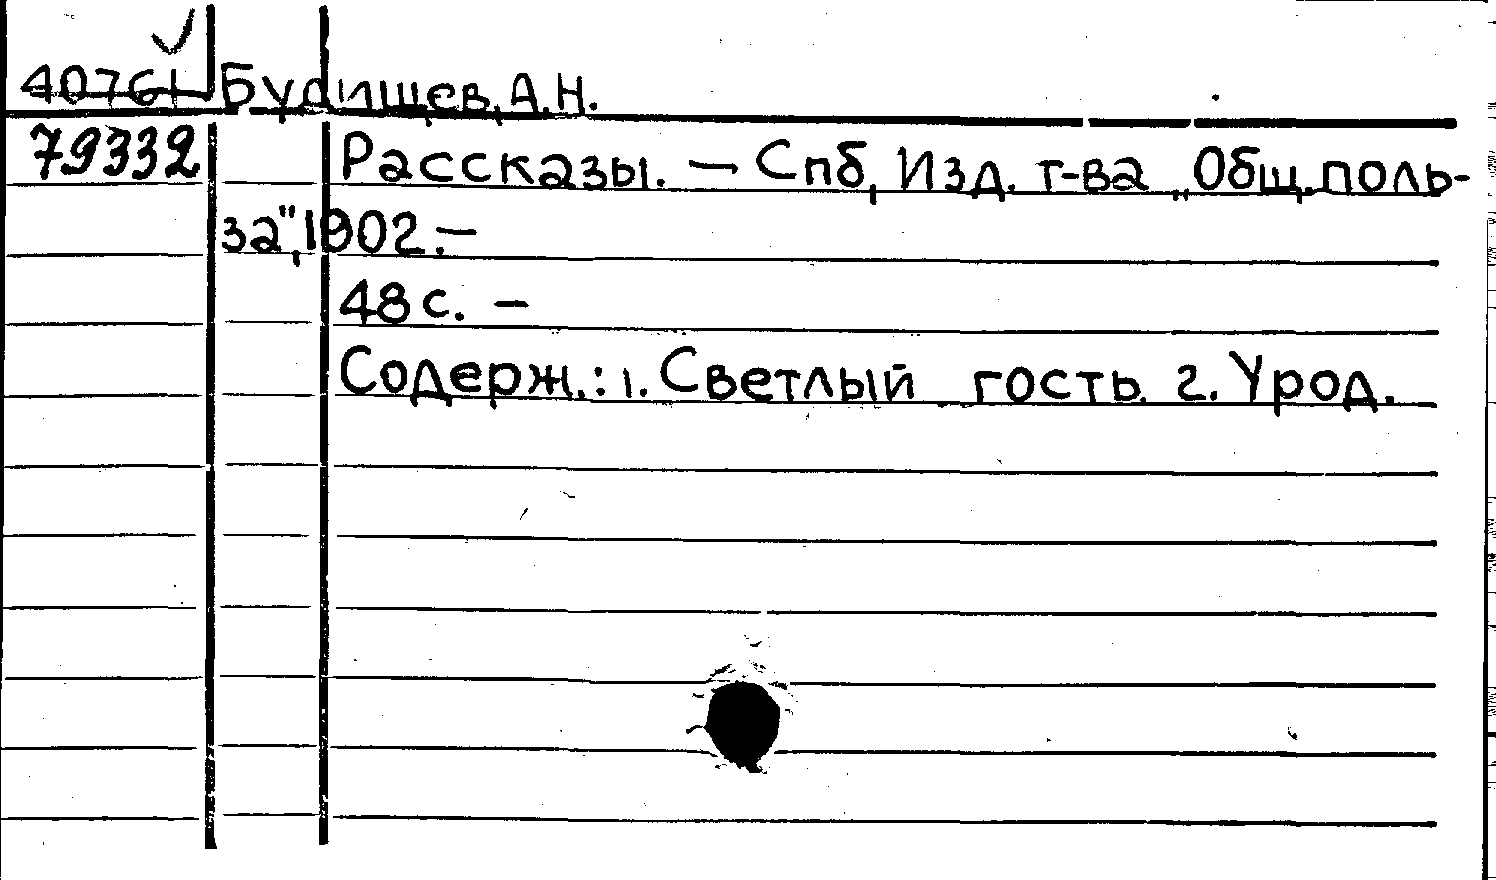 40761 Будищев, А.Н.
79332 Рассказы. — Спб, Изд. т-ва „Общ. поль-
за", 1902. —
48 с. —
Содерж.: 1. Светлый гость. 2. Урод.